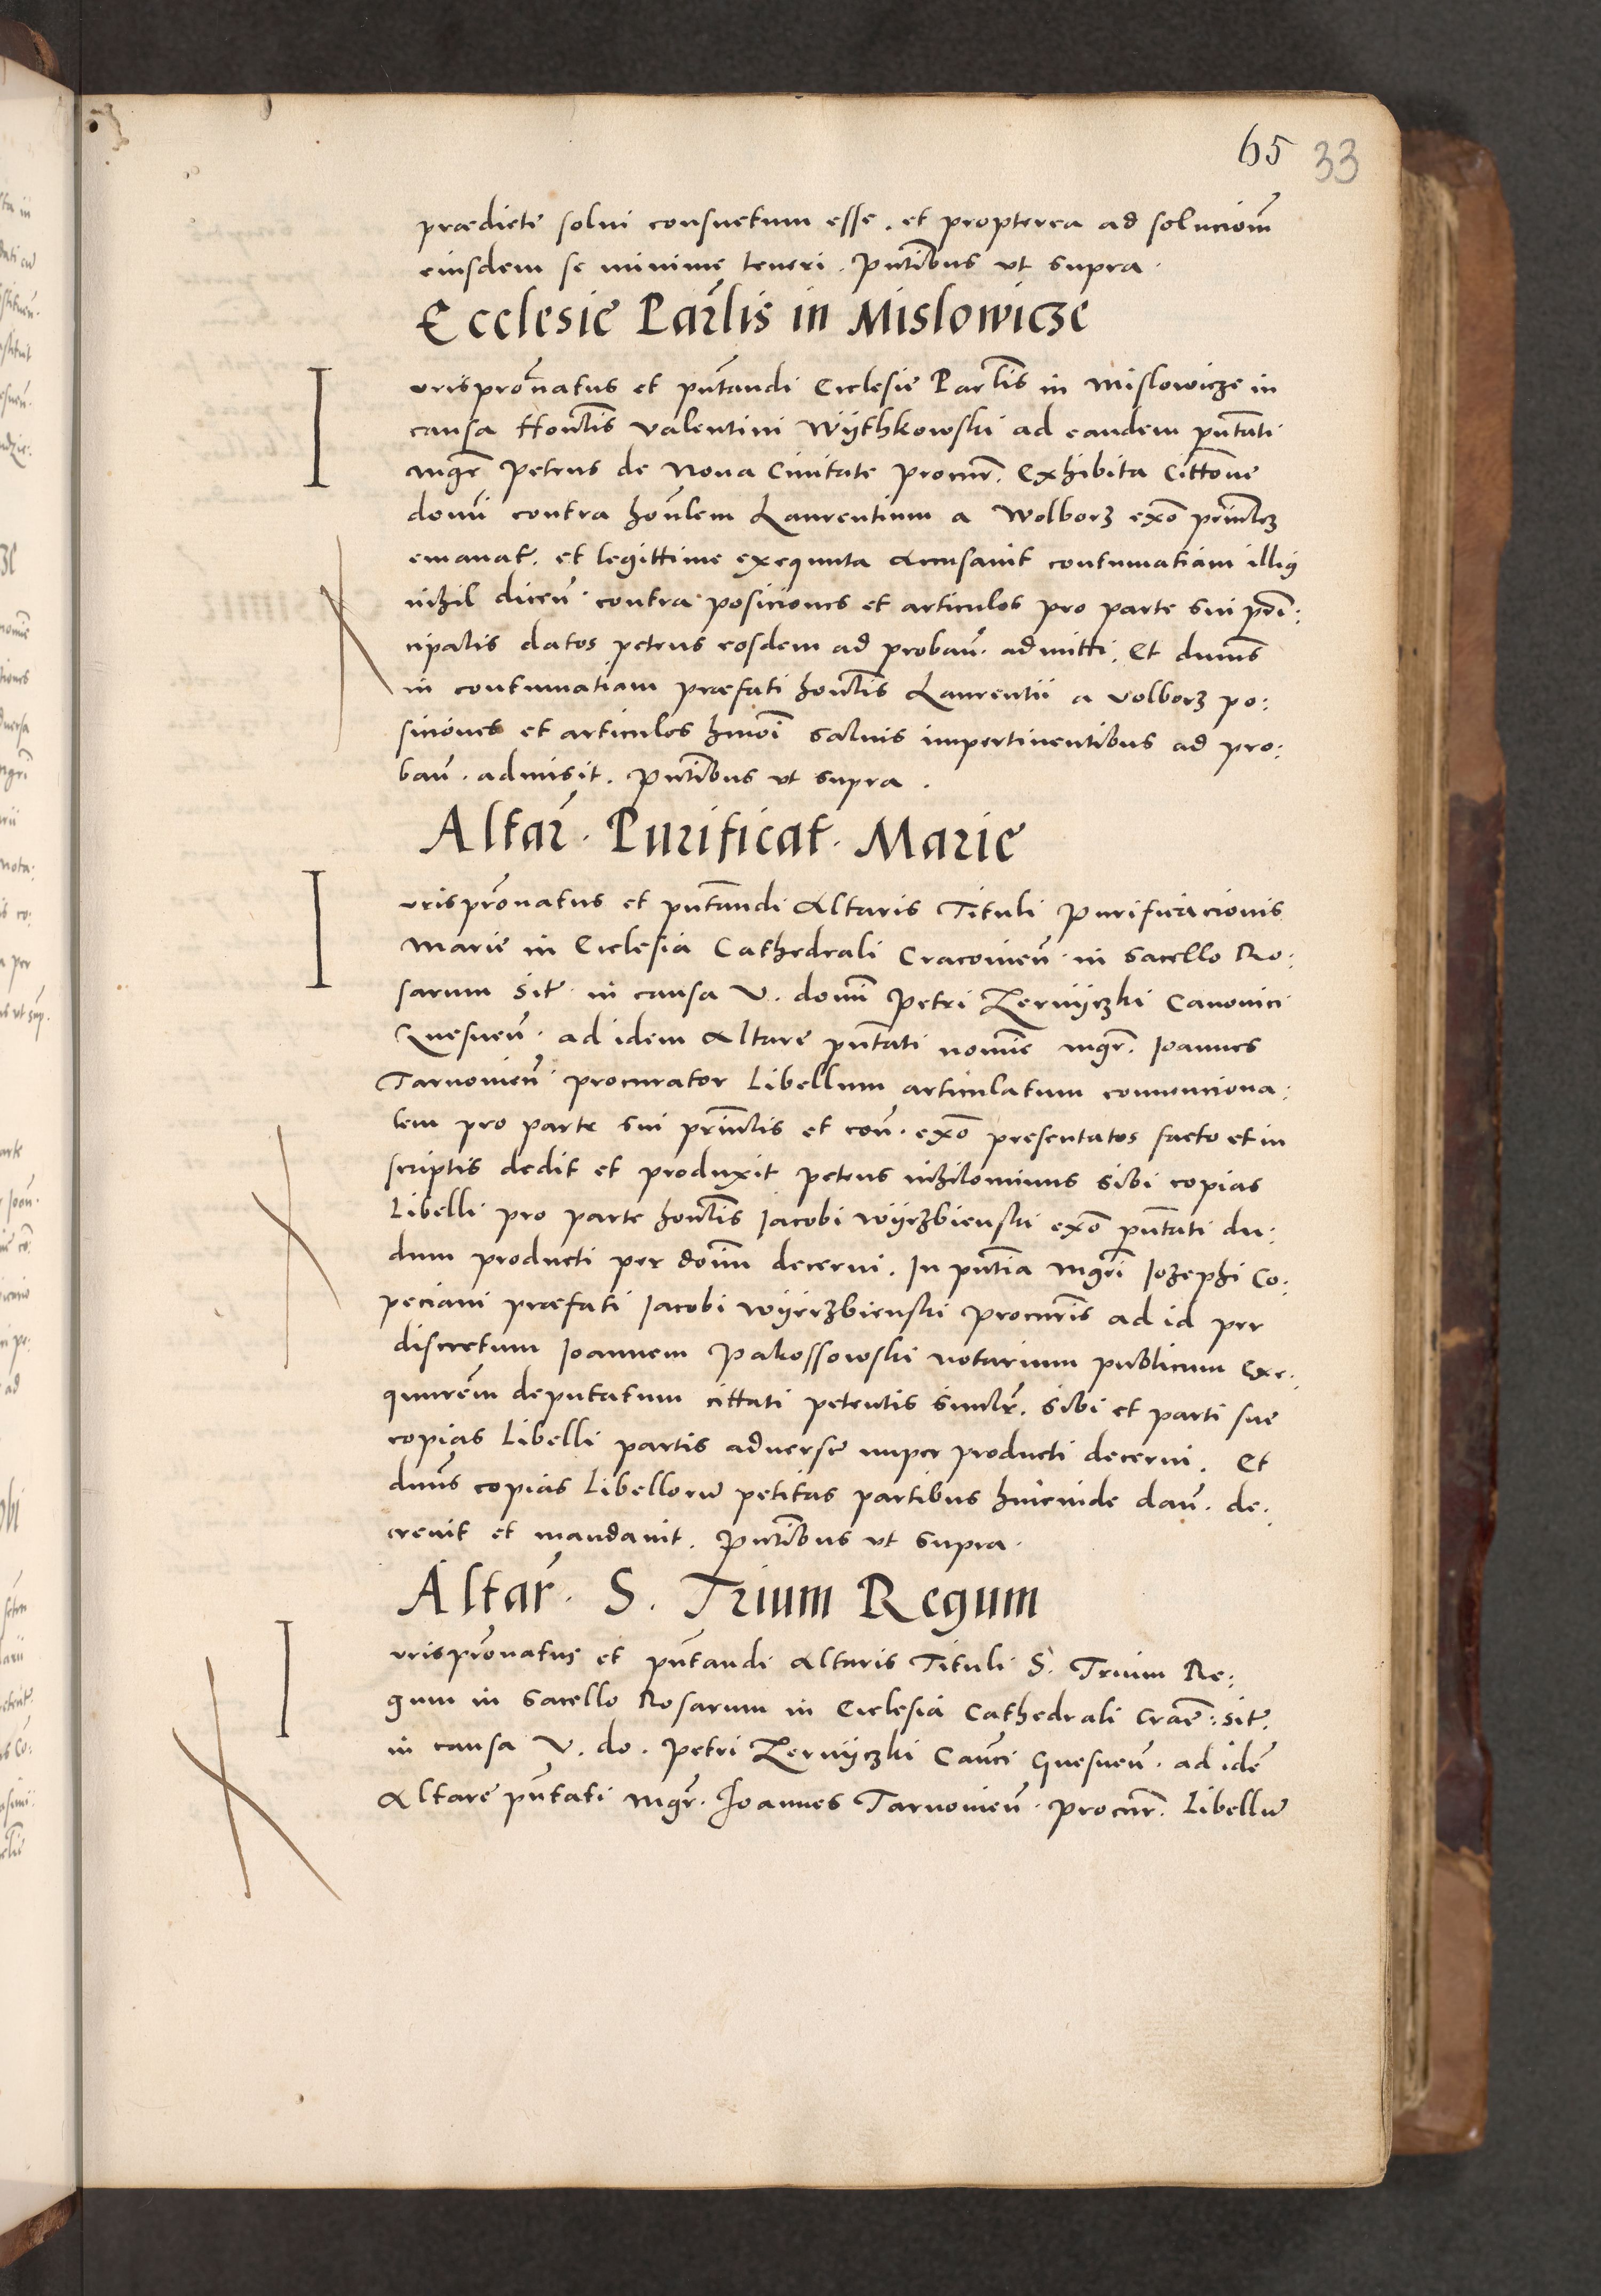 65 33
prædicte solui consuetum esse. et propterea ad soluciom̄
eiusdem se minime teneri. Pntibus vt supra.
Ecclesie Parlis in Mislowicze
Iurispronatus et pntandi Ecclesie Partis in Mislowicze in
causa Hontlis Valentini Wÿthkowski ad eandem pntati
mgr Petrus de Noua Ciuitate procur. Exhibita Cittone
domi contra honlem Laurentium a Wolborz exo princlez
emanat. et legittime exequuta Accusauit contumatiam illiq
nihil dicen. contra posiciones et articulos pro parte sui prin:
cipalis datos petens eosdem ad proban. admitti. Et dnus
in contumatiam præfati hontlis Laurentii a Volborz po:
siciones et articulos hmoi saluis impertinentibus ad pro:
ban. admisit. Pntibus vt supra.
Altar. Purificat. Marie
Iurispronatus et pntandi Altaris Tituli Purificacionis
Marie in Ecclesia Cathedrali Cracouien. in Sacello Ro:
sarum Sit. in causa V. domi Petri Zernÿczki Canonici
Gnesnen. ad idem Altare pntati nomine mgr. Joannes
Tarnouien. procurator Libellum articulatum conuenciona:
lem pro parte sui princlis et con. exo presentatos facto et in
scriptis dedit et produxit petens nihilominus sibi copias
Libelli pro parte hontlis Jacobi Wÿrzbienski exo pntati du:
dum producti per domi decerni. In pntia mgri Jozephi Co:
peciani præfati Jacobi Wÿerzbienski procuris ad id per
discretum Joannem Pakossowski notarium publicum Exe:
quurem deputatum cittati petentis simlr. sibi et parti sue
copias Libelli partis aduerse nuper producti decerni. Et
dnus copias Libelloru petitas partibus hincinde dan. de:
creuit et mandauit. Pntibus vt supra.
Altar. S. Trium Regum
Iurispronatus et pntandi Altaris Tituli S. Trium Re:
gum in Sacello Rosarum in Ecclesia Cathedrali Crace: sit.
in causa V. do. Petri Zernÿczki Canci Gnesnen. ad ide
Altare pntati mgr. Joannes Tarnouien. procur. Libellu